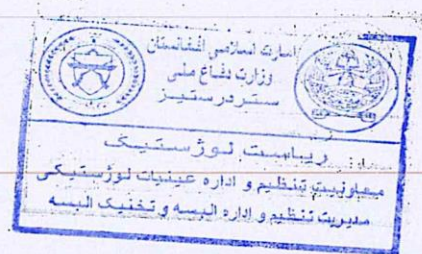 امارت اسلامی افغانستان
وزارت دفاع ملی
ستر درستیز
ریاست لوژستیک
معاونیت تنظیم و اداره عینیات لوژستیکی
مدیریت تنظیم و اداره البسه و تخنیک البسه